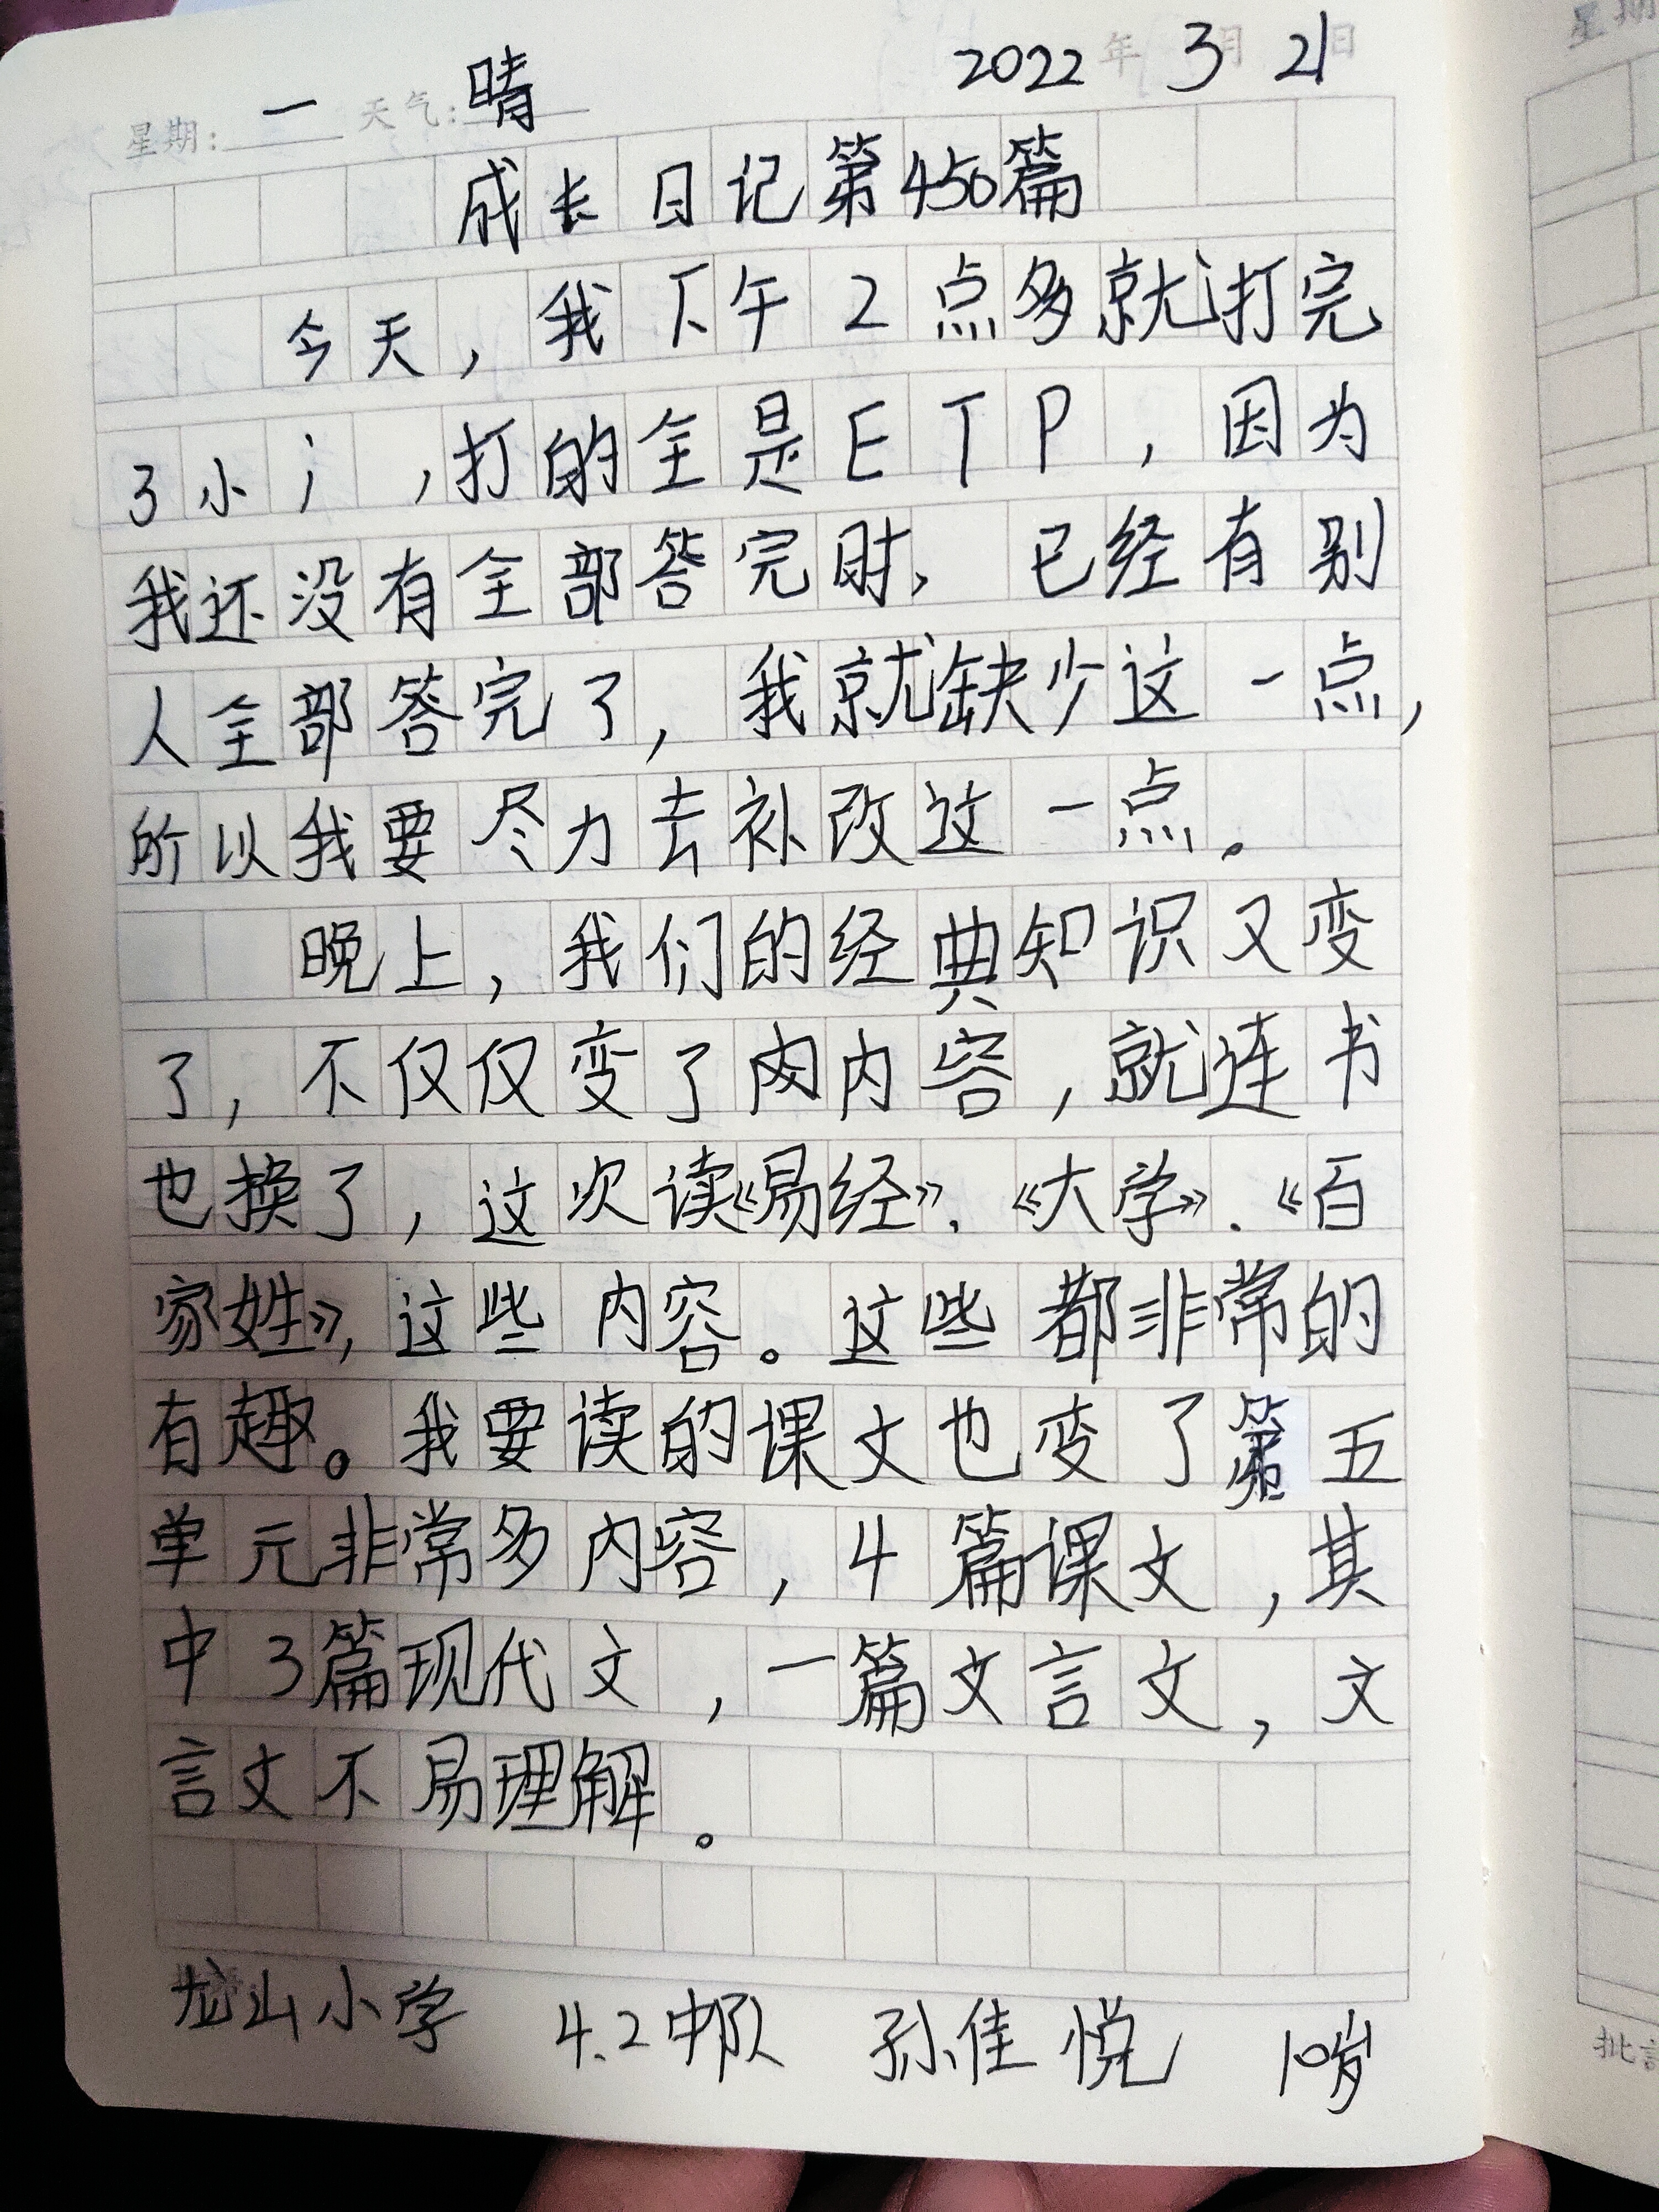 2022年3月21日
星期: 一 天气: 晴
成长日记第450篇
今天，我下午2点多就打完
3小讠，打的全是ETP，因为
我还没有全部答完时，已经有别
人全部答完了，我就缺少这一点，
所以我要尽力去补改这一点。
晚上，我们的经典知识又变
了，不仅仅变了内内容，就连书
也换了，这次读《易经》、《大学》、《百
家姓》，这些内容。这些都非常的
有趣。我要读的课文也变了第五
单元非常多内容，4篇课文，其
中3篇现代文，一篇文言文，文
言文不易理解。
龙山小学 4.2中队 孙佳悦 10岁
星期